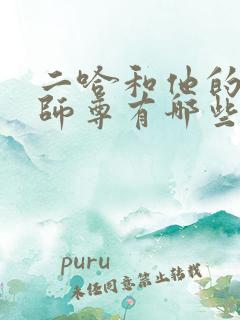 二哈和他的
師尊有哪些
puru
未经同意禁止转载